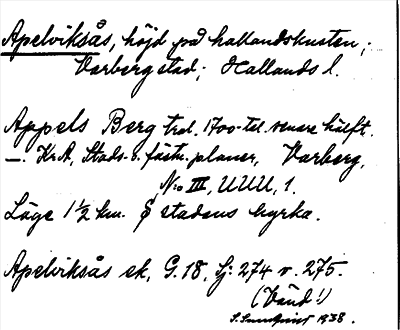 Apelviksås, höjd på hallandskusten;
Varberg stad; Hallands l.
Appels Berg trol. 1700-tal. senare hälft.
—. Kr.A, Stads- o. fästn. planer, Varberg,
N:o III, UUU, 1.
Läge 1 1/2 km. S stadens kyrka.
Apelviksås ek, G. 18, Sj: 274 v. 275.
(Vänd!)
1938.